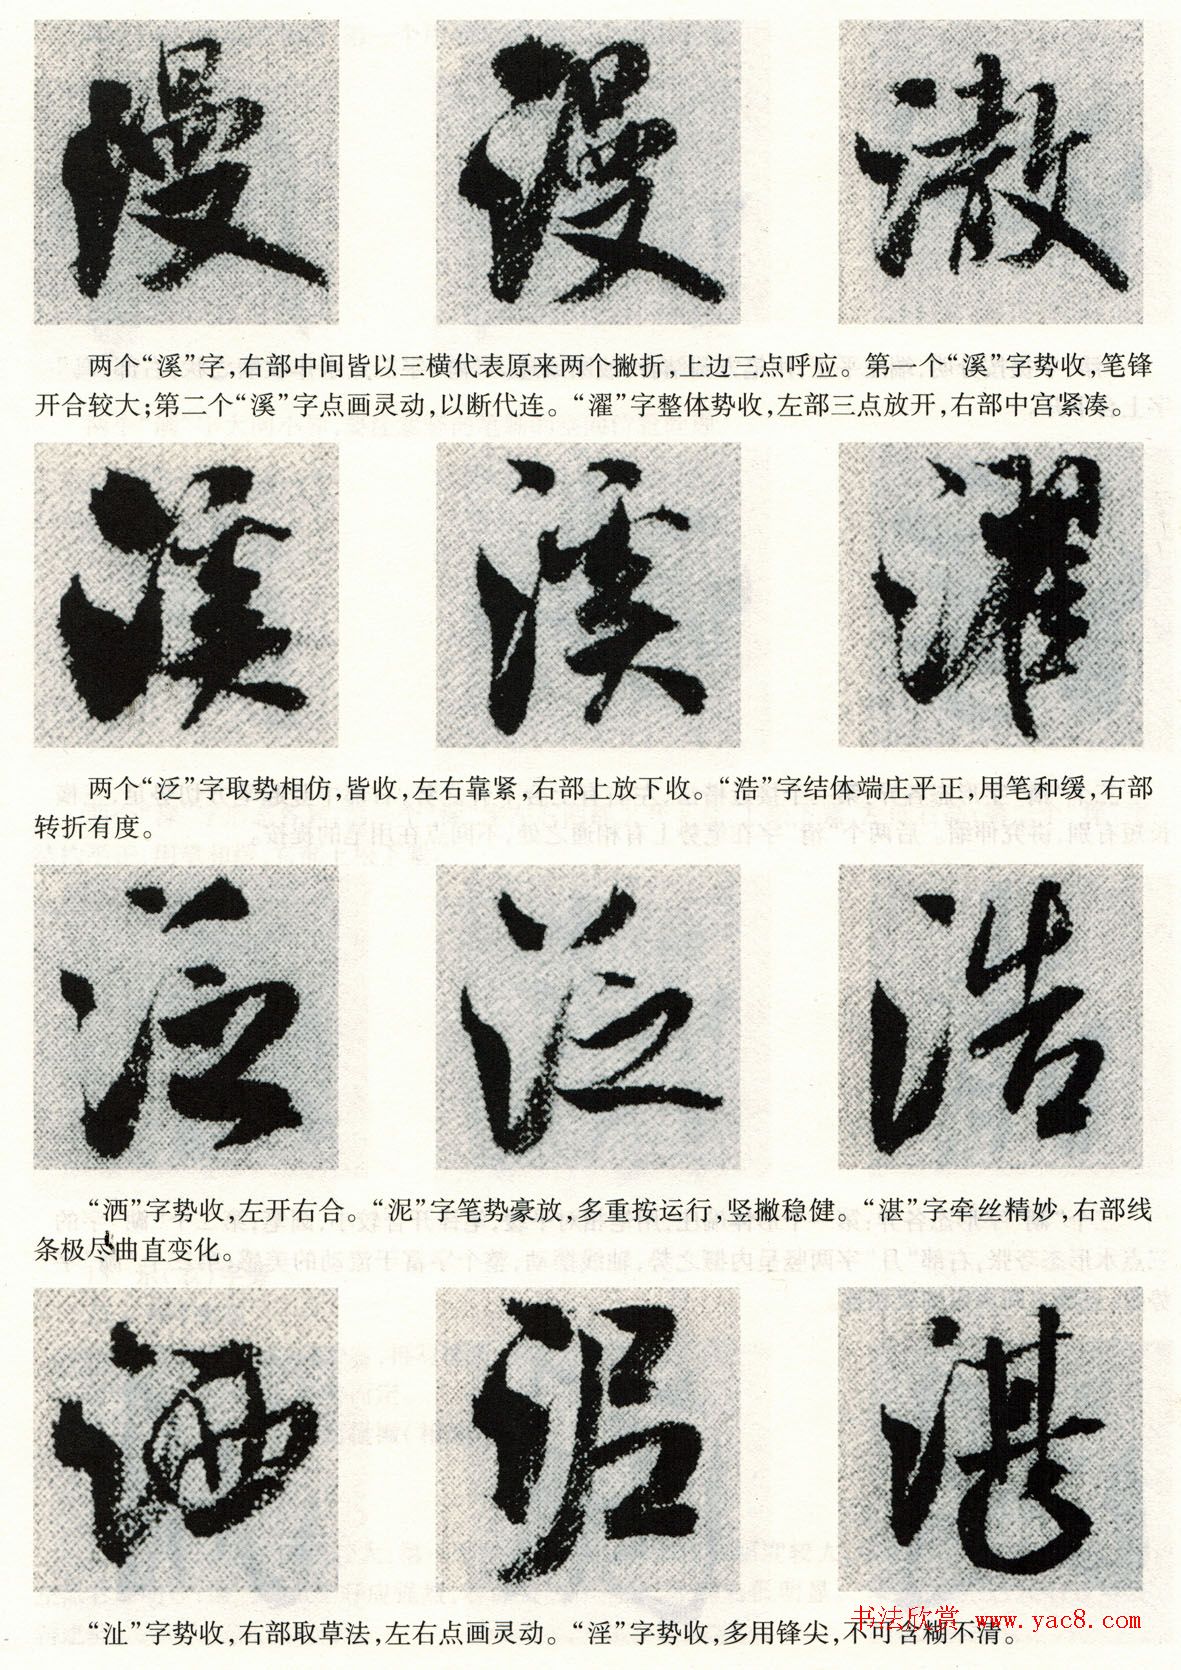 漫 漫 澈
两个“溪”字，右部中间皆以三横代表原来两个撇折，上边三点呼应。第一个“溪”字势收，笔锋
开合较大；第二个“溪”字点画灵动，以断代连。“濯”字整体势收，左部三点放开，右部中宫紧凑。
溪 溪 濯
两个“泛”字取势相仿，皆收，左右靠紧，右部上放下收。“浩”字结体端庄平正，用笔和缓，右部
转折有度。
泛 泛 浩
“洒”字势收，左开右合。“泥”字笔势豪放，多重按运行，竖撇稳健。“湛”字牵丝精妙，右部线
条极尽曲直变化。
洒 泥 湛
“沚”字势收，右部取草法，左右点画灵动。“淫”字势收，多用锋尖，不可含糊不清。
书法欣赏 www.yac8.com